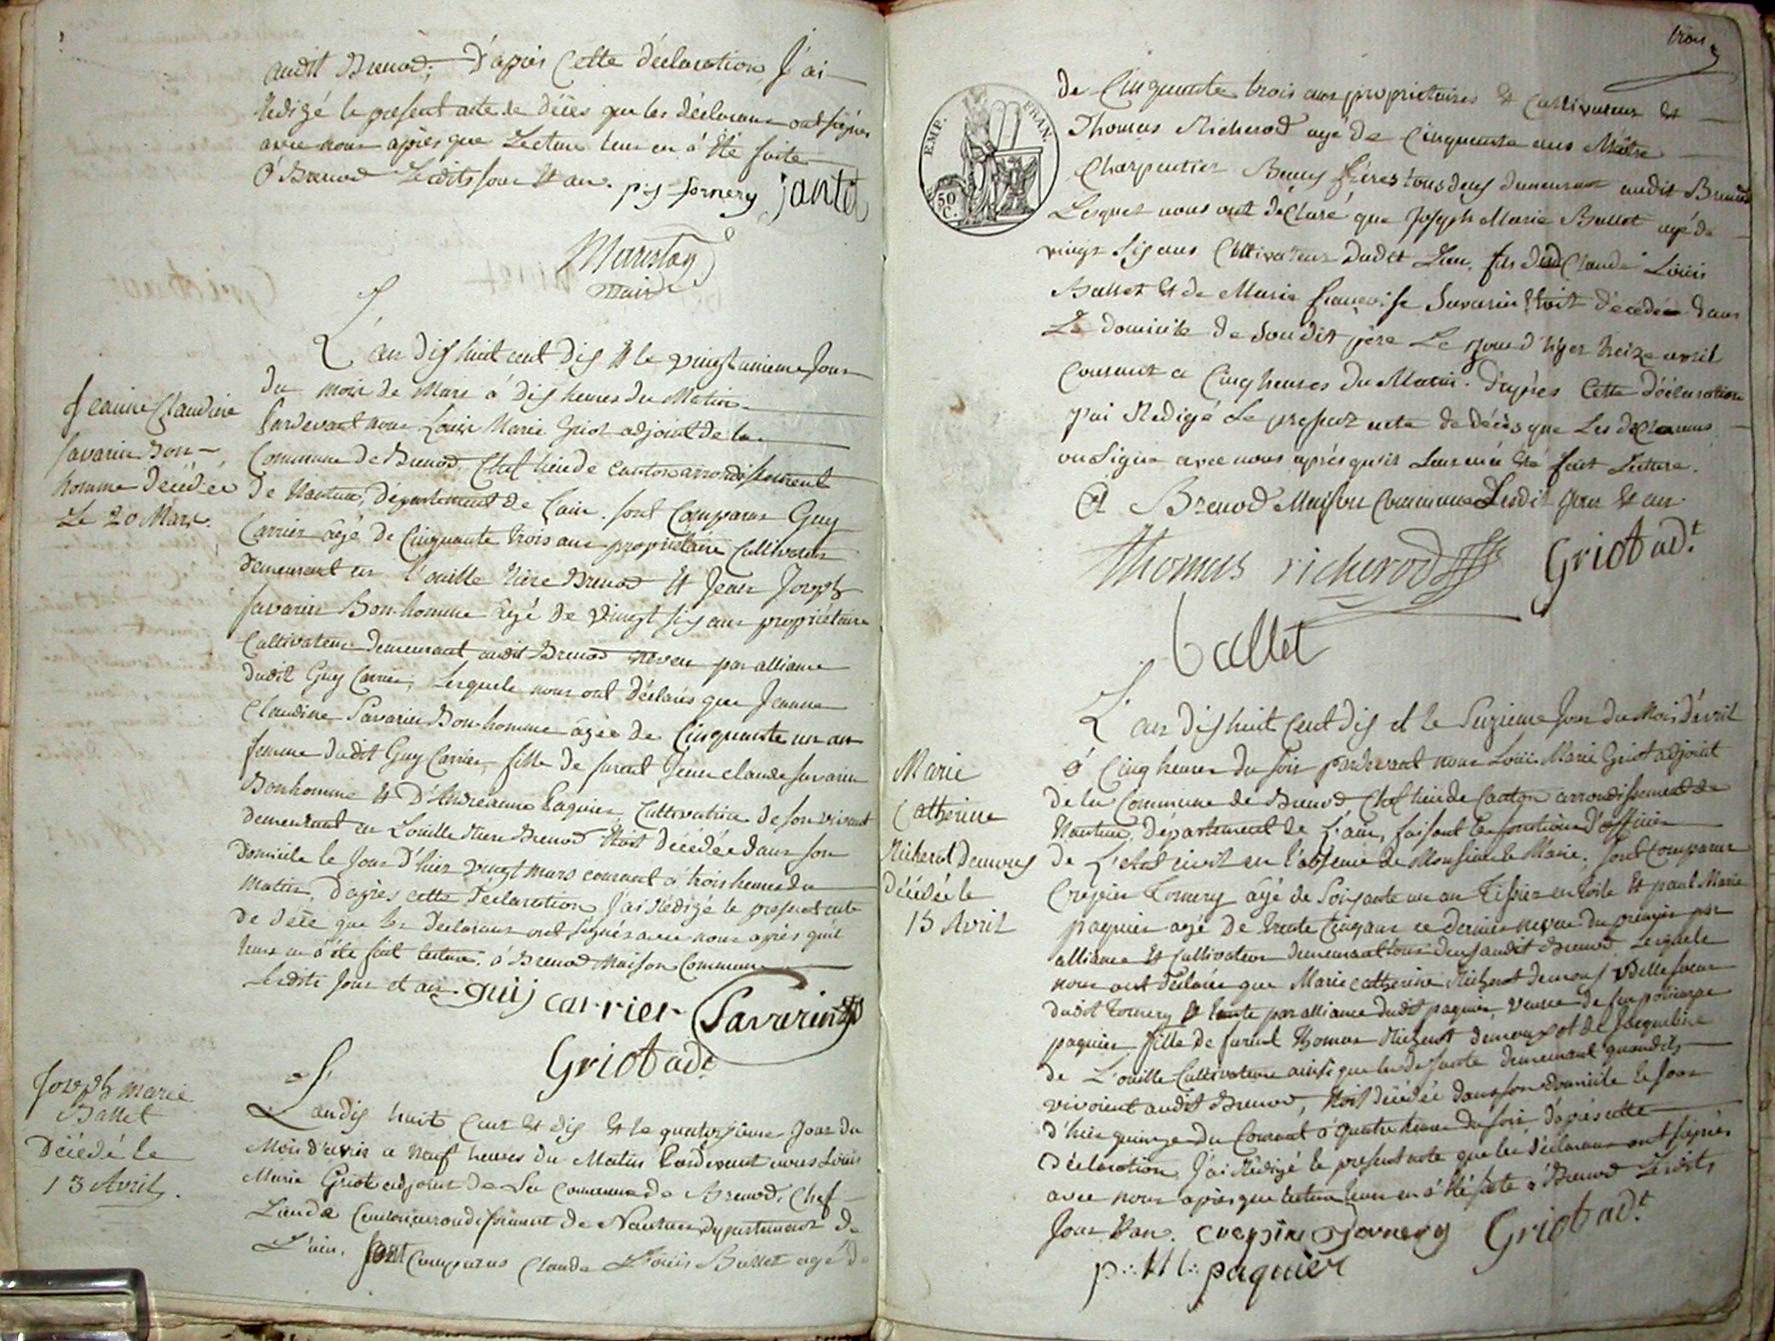 audit Brenod; D'après Cette déclaration J'ai
Rédigé le present acte de décès que les déclarans ont signés
avec nous après que Lecture leur en à été faite
à Brenod Lesdits jour et an. p.j fornery jantet
Maire
L'an dix huit cent dix et le vingt unieme Jour
du mois de Mars à dix heures du Matin
Pardevant nous Louis Marie Griot adjoint de la
Commune de Brenod, Chef lieu de canton arrondissement
de Nantua, département de L'ain. sont Comparus Guy
Carrier âgé de Cinquante trois ans propriétaire Cultivateur
demeurant en L'ouille Rière Brenod et Jean Joseph
Savarin Bon-homme âgé de vingt six ans propriétaire
Cultivateur demeurant audit Brenod Neveu par alliance
dudit Guy Carrier, Lesquels nous ont déclarés que Jeanne
Claudine Savarin Bon-homme âgée de Cinquante un an
femme dudit Guy Carrier, fille de furent Jean claude Savarin
Bonhomme et D'Andréanne Paquier, Cultivatrice de son vivant
demeurant en Louille Riere Brenod étoit décédée dans son
domicile le Jour D'hier vingt mars courant à trois heures du
matin, d'après cette declaration J'ai rédigé le present acte
de décè que les declarans ont signés avec nous après quil
leurs en à été fait lecture. à Brenod Maison Commune
Lesdits Jour et an. guij carrier Savarin
Griot adt
Jeanne Claudine
Savarin Bon-
homme décédée
Le 20 Mars.
L'an dix huit Cent et dix et le quatorzieme Jour du
Mois d'avril a Neuf heures du Matin Pardevant nous Louis
Marie Griot adjoint de La Commune de Brenod, Chef
Lieu de Canton arrondissement de Nantua Département de
L'ain. sont Comparus Claude Louis Ballet agé de
Joseph marie
Ballet
Décédé le
13 Avril.
trois
EMP. FRAN.
50 C.
de Cinquante trois ans proprietaires et Cultivateur et
Thomas Richerod agé de Cinquante ans Maître
Charpentier Beaux frères tous deux demeurant audit Brenod
Lesquels nous ont déClaré que Joseph Marie Ballet agé de
vingt six ans Cultivateur dudit Lieu, fils dud Claude Louis
Ballet et de Marie françoise Savarin étoit décédé dans
Le domicile de Son dit père Le jour d'hyer treize avril
Courant a Cinq heures du Matin. d'après Cette déclaration
J'ai Rédigé Le present acte de décès que Les déclarans
on Signé avec nous après qu'il Leur en à été fait Lecture.
A Brenod Maison Commune Lesdit jour et an
thomas richerod Griot adt
ballet
L'an dix huit Cent dix et le Seizieme Jour du Mois d'avril
à Cinq heures du soir pardevant nous Louis Marie Griot adjoint
de la Commune de Brenod Chef lieu de Canton arrondissement de
Nantua, département de L'ain, faisant les fonctions d'officier
de L'etat civil en l'absence de Monsieur le Maire. sont Comparus
Crepin fornery âgé de soixante un an Tissier en toile et paul Marie
paquier agé de trente Cinq ans ce dernier neveu du premier par
alliance et Cultivateur demeurant tous deux audit Brenod Lesquels
nous ont déclarés que Marie catherine Richerot demoux Belle soeur
dudit fornery et tante par alliance dudit paquier, veuve de feu policarpe
paquier fille de furent Thomas Richerot demoux et de Jacqueline
de L'ouille Cultivateurs ainsi que la defunte demeurant quand ils
vivoient audit Brenod, étoit décédée dans son domicile le Jour
d'hier quinze du Courant à quatre heures du soir, d'après cette
déclaration J'ai Rédigé le present acte que les déclarans ont signés
avec nous après que lecture leur en à été faite à Brenod Lesdits
Jour et an. crepin fornery Griot adt
p:M: paquier
Marie
Catherine
Richerot demoux
décédée le
15 Avril